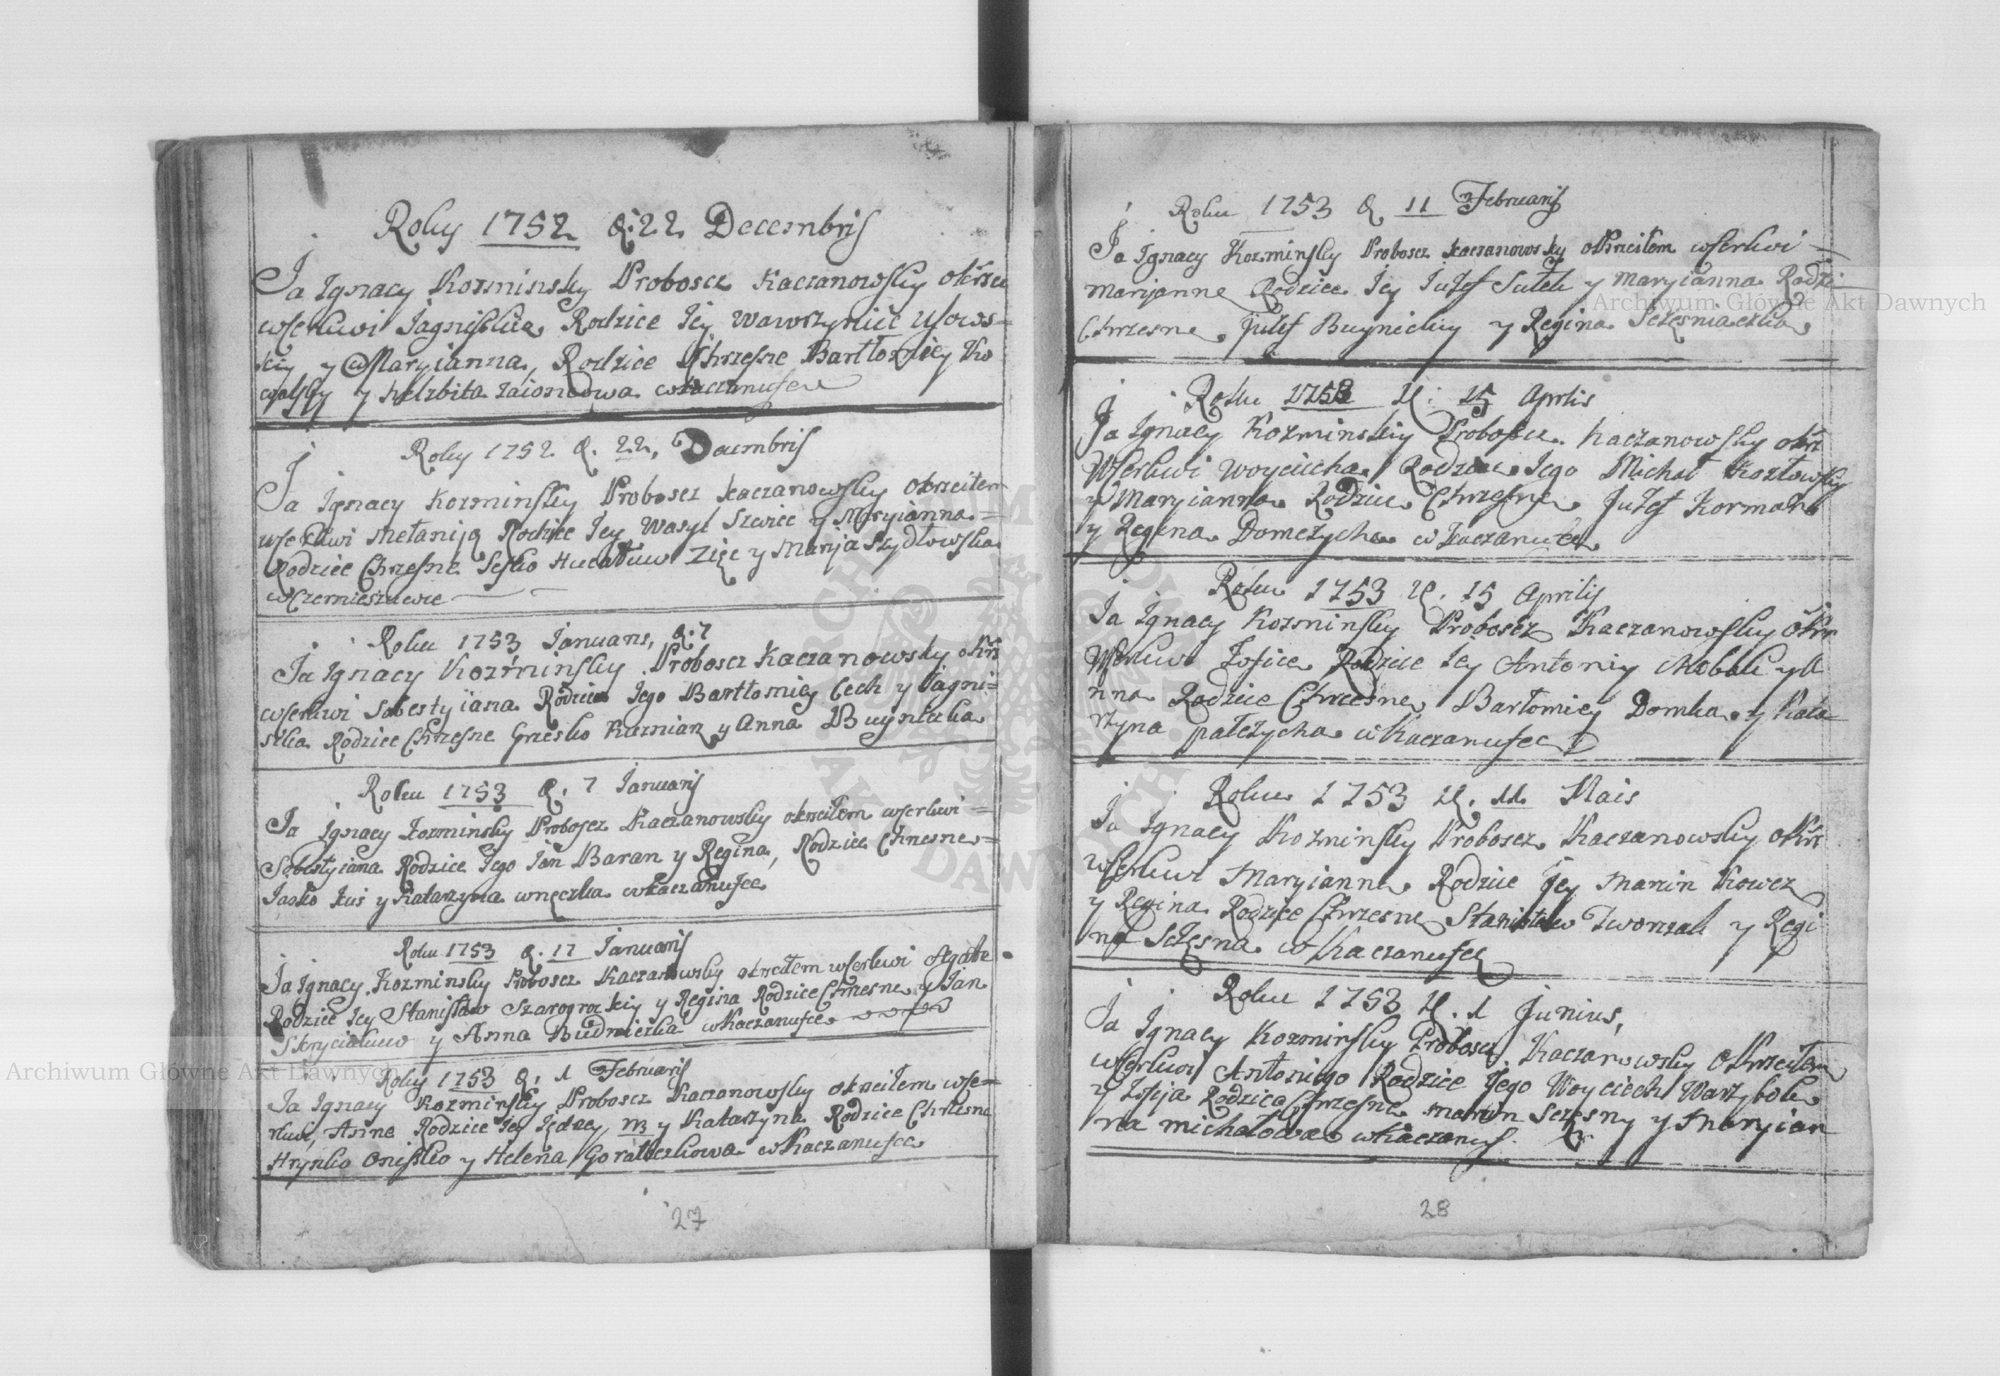 Roku 1752 d. 22 Decembris
Ja Ignacy Kozminsky Proboscz Kaczanowsky okrzci
wserkwi Jagniszka Rodzice Jey Wawrzyniec
ky y Maryianna, Rodzice Chrzesne Bartłomiey Ko
walsky y Helzbita
Roku 1752 d. 22, Decembris
Ja Ignacy Kozminsky Proboscz Kaczanowsky okrzciłem
wserkwi Mełaniją Rodzice Jey Wasyl Szwiec y Maryianna
Rodzice Chrzesne Zięc y Maryja Szydłowska
w
Roku 1753 Januaris, d. 7
Ja Ignacy Kozminsky Proboscz Kaczanowsky okrz
wserkwi Sobestyiana Rodzice Jego Bartłomiey Cech y Jagni-
szka Rodzice Chrzesne Grzesko Kuzniar y Anna
Roku 1753 d. 7 Januaris
Ja Ignacy Kozminsky Proboscz Kaczanowsky okrzciłem wserkwi
Sobestyiana Rodzice Jego Jan Baran y Regina, Rodzice Chrzesne
Jasko Kus y Katarzyna wnęczka wKaczanufce
Roku 1753 d. 17 Januaris
Ja Ignacy Kozminsky Proboscz Kaczanowsky okrzciłem wserkwi Agate
Rodzice Jey Stanisław Szarogrockiy y Regina Rodzice Chrzesne y Jan
y Anna Budniczka wKaczanufce
Roku 1753 d. 1 Februaris
Ja Ignacy Kozminsky Proboscz Kaczanowsky okrzciłem wse-
rkwi, Anne Rodzice Jey Jędrzey m y Katarzyna Rodzice Chrzesne
Hrysko Onisko y Helena wKaczanufce
27
Roku 1753 d 11 Februaris
Ja Ignacy Kozminsky Proboscz Kaczanowsky okrzciłem wserkwi
Marijanne Rodzice Jey Juzef y Maryianna Rodzi
Chrzesne Juzef Buynickiy y Regina
Roku 1753 d. 15 Aprilis
Ja Ignacy Kozminskiy Proboscz Kaczanowsky okrz
Wserkwi Woyciecha Rodzice Jego Michał Kozłowsky
y Maryianna Rodzice Chrzesne Juzef Korman
y Regina Domczycha w Kaczanufce
Roku 1753 d. 15 Aprilis
Ja Ignacy Kozminsky Proboscz Kaczanowsky okrz
Wserkwi Zofice Rodzice Jey Antoniy y A
nna Rodzice Chrzesne Bartomiey Domka y Kata-
rzyna wKaczanufce
Roku 1753 d. 11 Mais
Ja Ignacy Kozminsky Proboscz Kaczanowsky okrz
wserkwi Maryianne Rodzice Jey Marcin
y Regina Rodzice Chrzesne Stanisław Tworzak y Regi
na Sczęsna w Kaczanufce
Roku 1753 d. 1 Junius,
Ja Ignacy Kozminsky Proboscz Kaczanowsky Okrzciłem
wserkwi Antoniego Rodzice Jego Woyciech
y Zofija Rodzice Chrzesne Marcin Sczesny y Maryian
na Michałowa wKaczanuf.
28
Archiwum Główne Akt Dawnych
Archiwum Główne Akt Dawnych